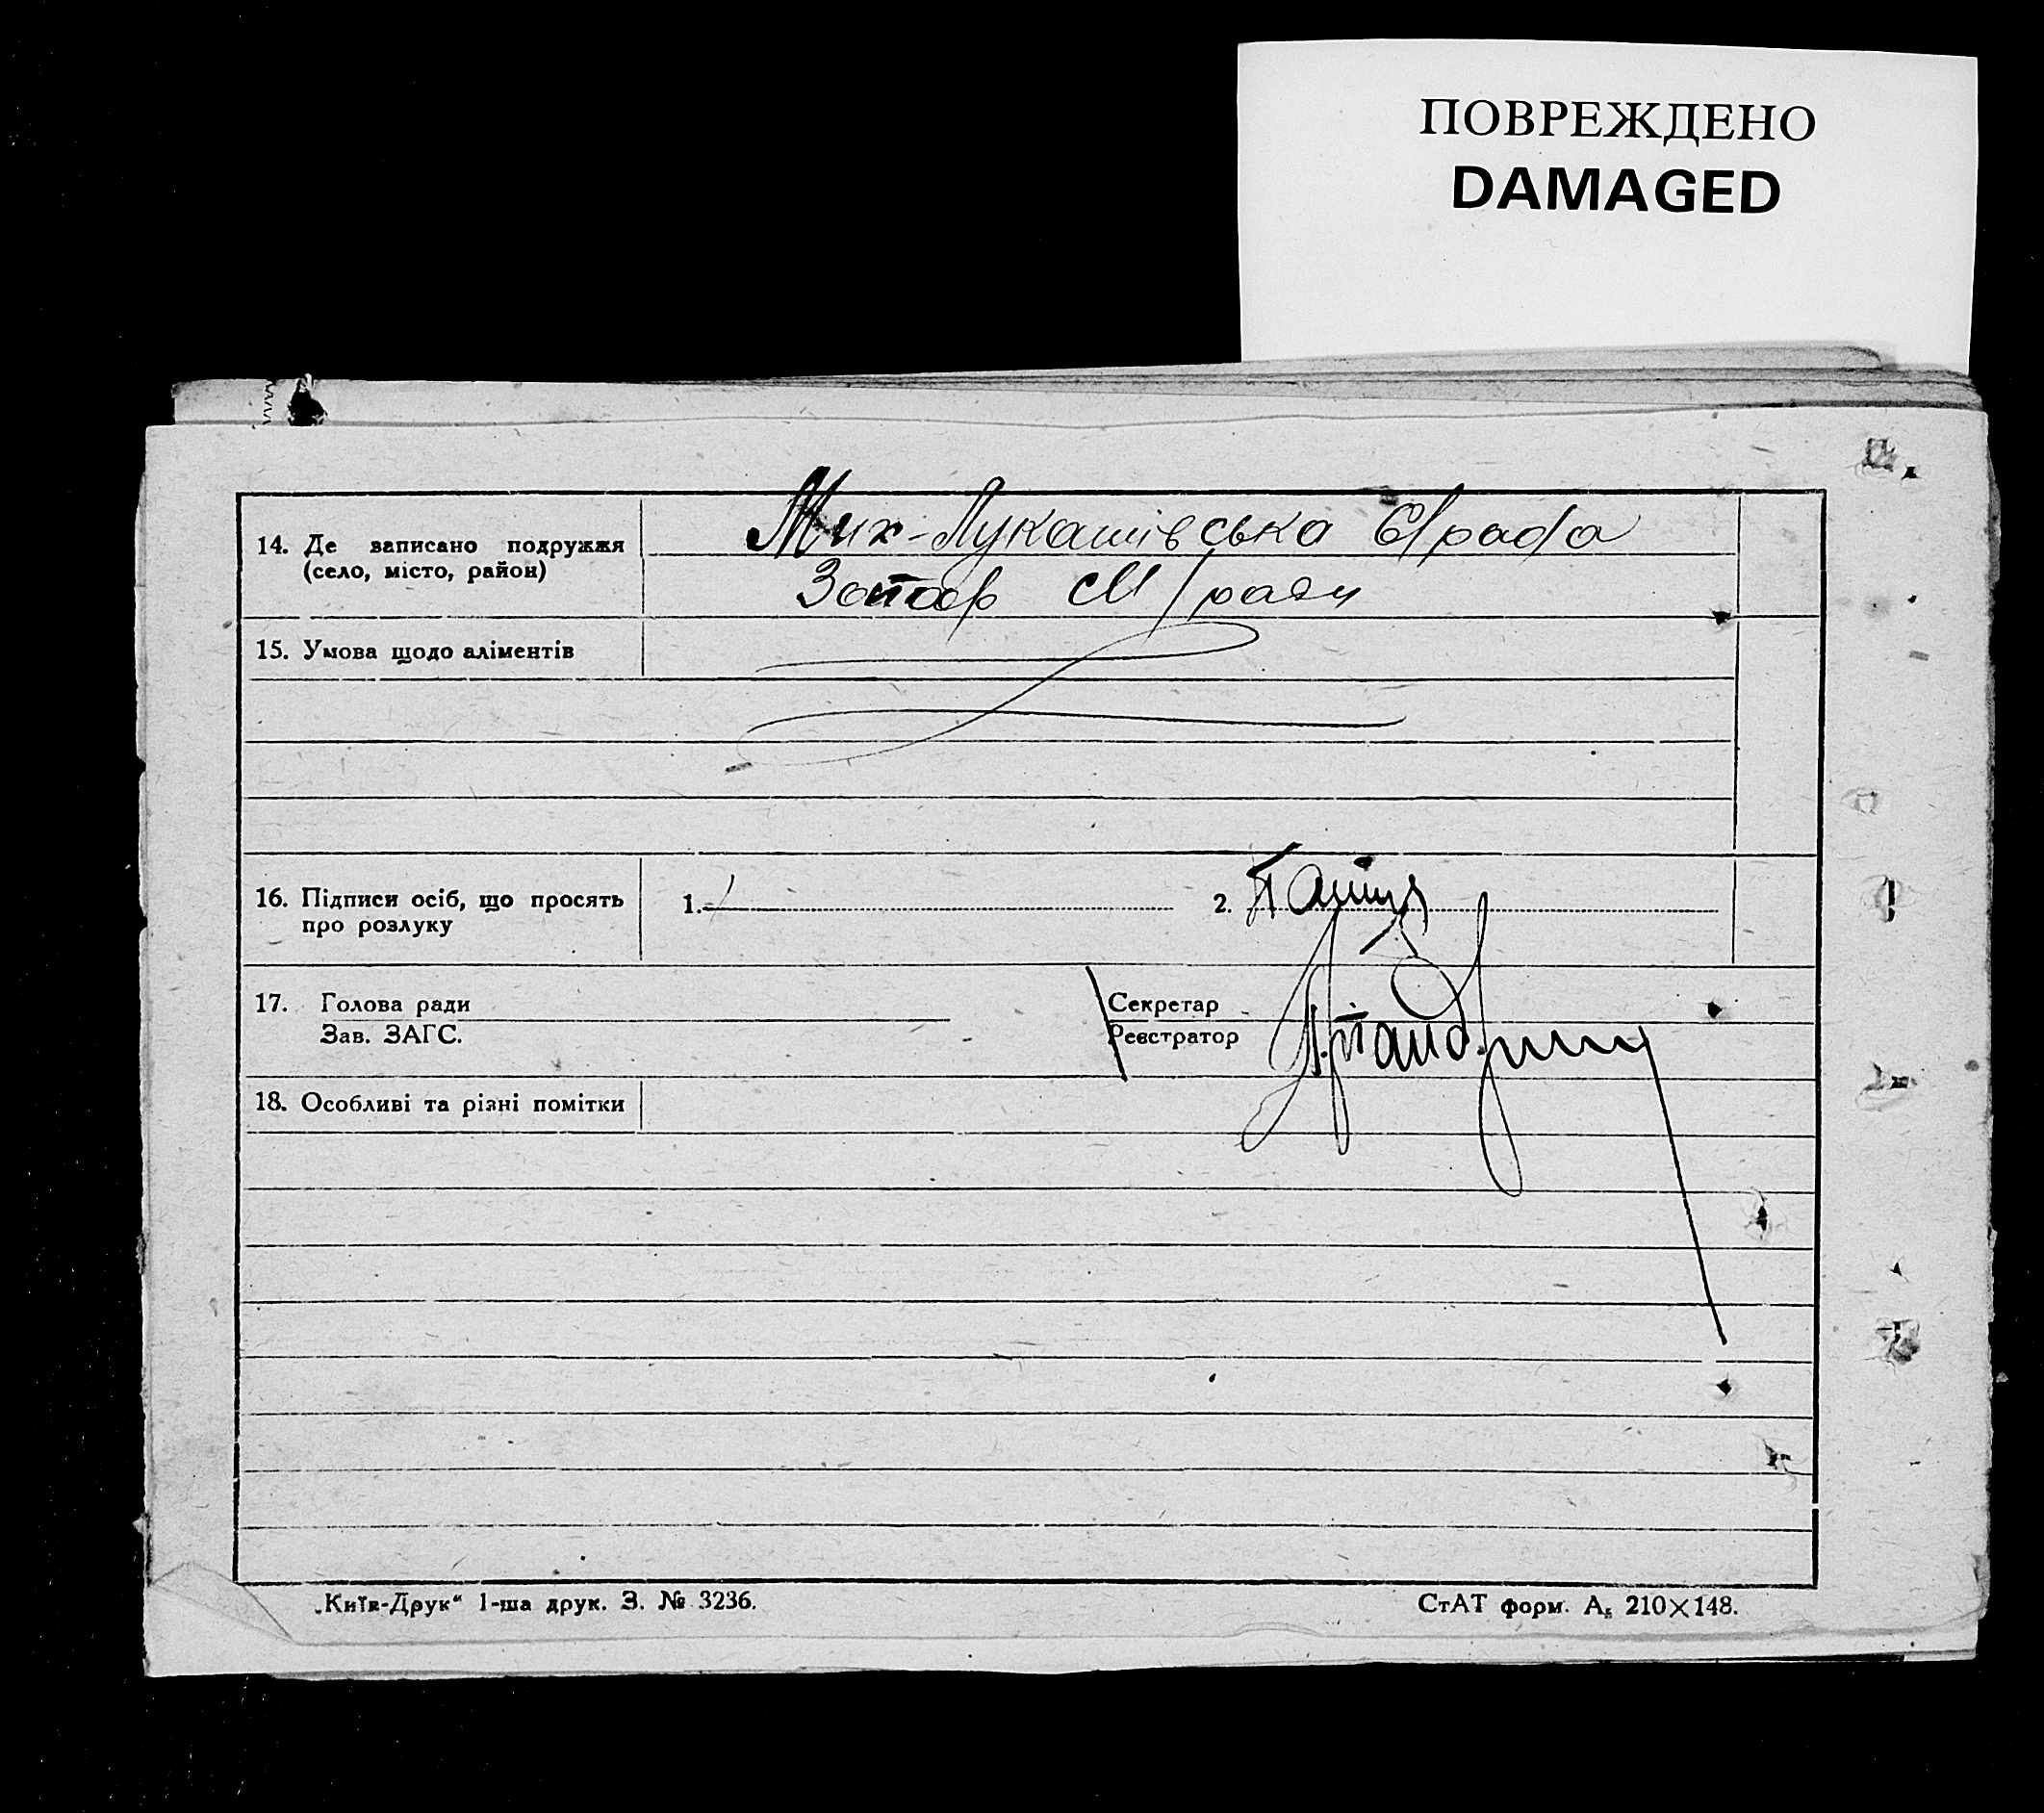 ПОВРЕЖДЕНО
DAMAGED
14. Де записано подружжя
(село, місто, район)
Мих-Лукашівська С/рада
М/ради
15. Умова щодо аліментів
16. Підписи осіб, що просять
про розлуку
1.
2.
17. Голова ради
Зав. ЗАГС.
Секретар
Реєстратор
18. Особливі та різні помітки
„Київ-Друк“ 1-ша друк. З. № 3236.
СтАТ форм. А₅ 210×148.